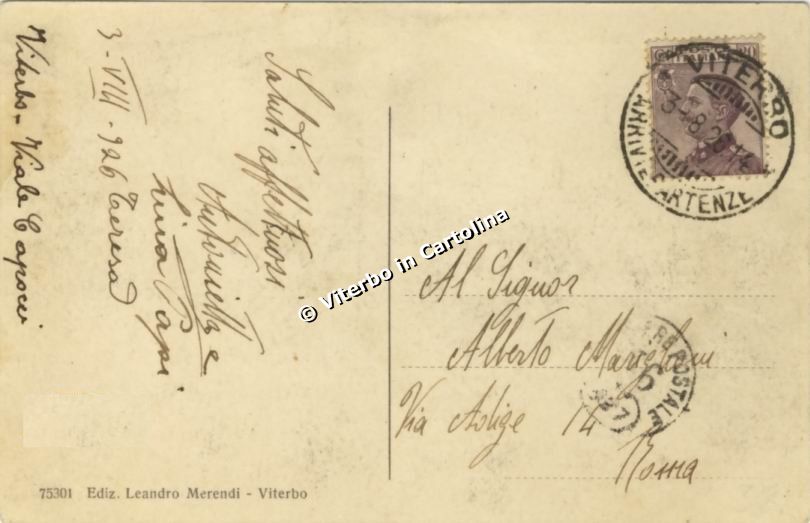 Viterbo - Viale Capocci
3 - VIII - 926 Teresa
Saluti affettuosi
Antonietta e
Lina Papi
Al Signor
Alberto
Via Adige 14
Roma
VITERBO
ARRIVI E PARTENZE
POSTALE
© Viterbo in Cartolina
75301 Ediz. Leandro Merendi - Viterbo